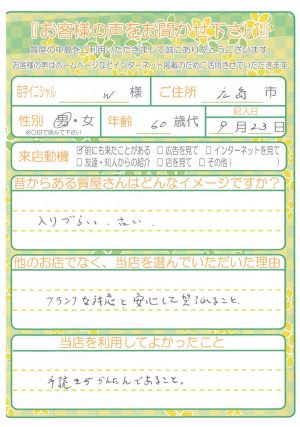 『お客様の声をお聞かせ下さい!』
質屋の中島をご利用いただきまして誠にありがとうございます。
お客様の声はホームページなどインターネット掲載のために活用させていただきます。
苗字イニシャル W 様 ご住所 広島 市
性別 男・女 年齢 60 歳代 記入日
※○印で囲んで下さい 9月23日
来店動機 ☑前にも来たことがある □広告を見て □インターネットを見て
□友達・知人からの紹介 □店を見て □その他(
昔からある質屋さんはどんなイメージですか?
入りづらい、
他のお店でなく、当店を選んでいただいた理由
フランクな接客と安心して
こと。
当店を利用してよかったこと
手続きがかんたんであること。